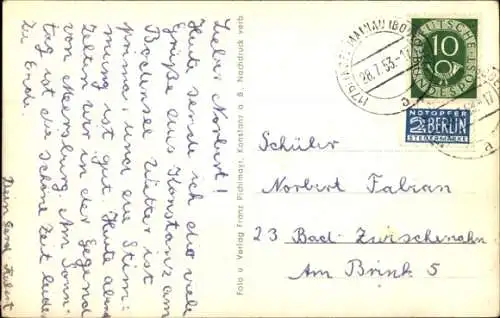 Lieber Norbert!
Heute sende ich dir viele
Grüße aus Konstanz am
Bodensee. Wetter ist
prima, und die Stim-
mung ist gut. Heute abend
Zelten wir in der Gegend
von Meersburg. Am Sonn-
tag ist die schöne Zeit leider
zu Ende.
Dein
Foto u. Verlag Franz Pichlmayr, Konstanz a. B. Nachdruck verb
28.7.53
DEUTSCHE
BUNDESPOST
10
NOTOPFER
2 BERLIN
STEUERMARKE
Schüler
Norbert Fabian
23 Bad Zwischenahn
Am Brink 5